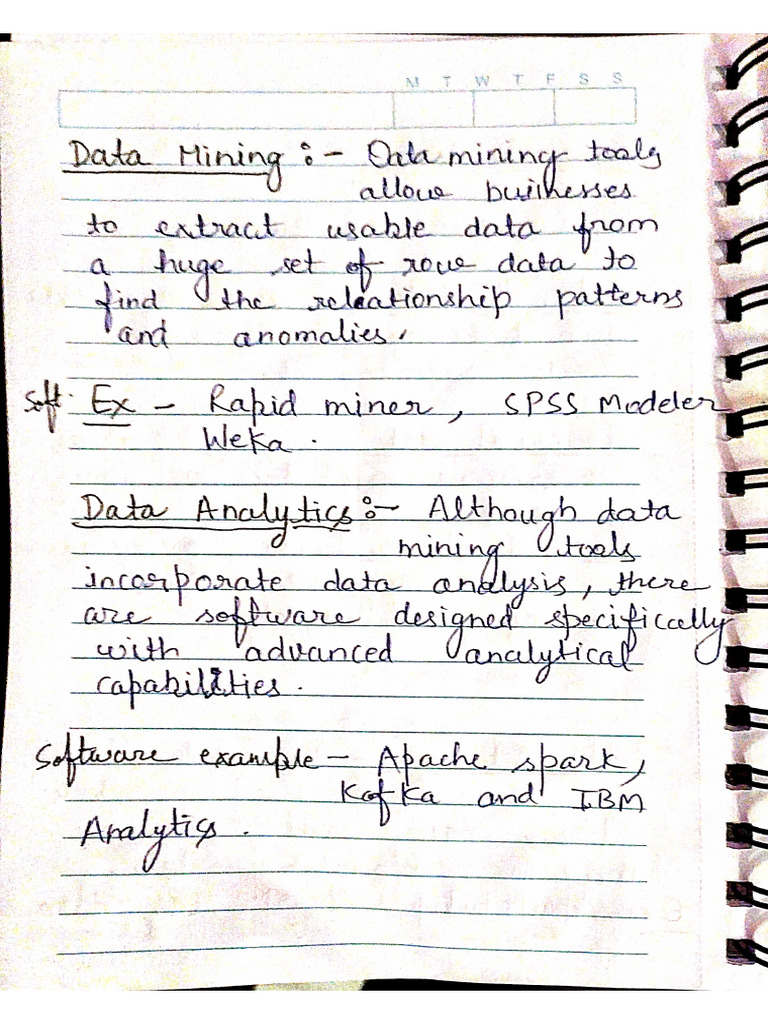 M T W T F S S
Data Mining :- Data mining tools
allow businesses
to extract usable data from
a huge set of row data to
find the releationship patterns
and anomalies.
Soft. Ex - Rapid miner, SPSS Modeler
Weka.
Data Analytics :- Although data
mining tools
incorporate data analysis, there
are software designed specifically
with advanced analytical
capabilities.
Software example - Apache spark,
Kafka and IBM
Analytics.